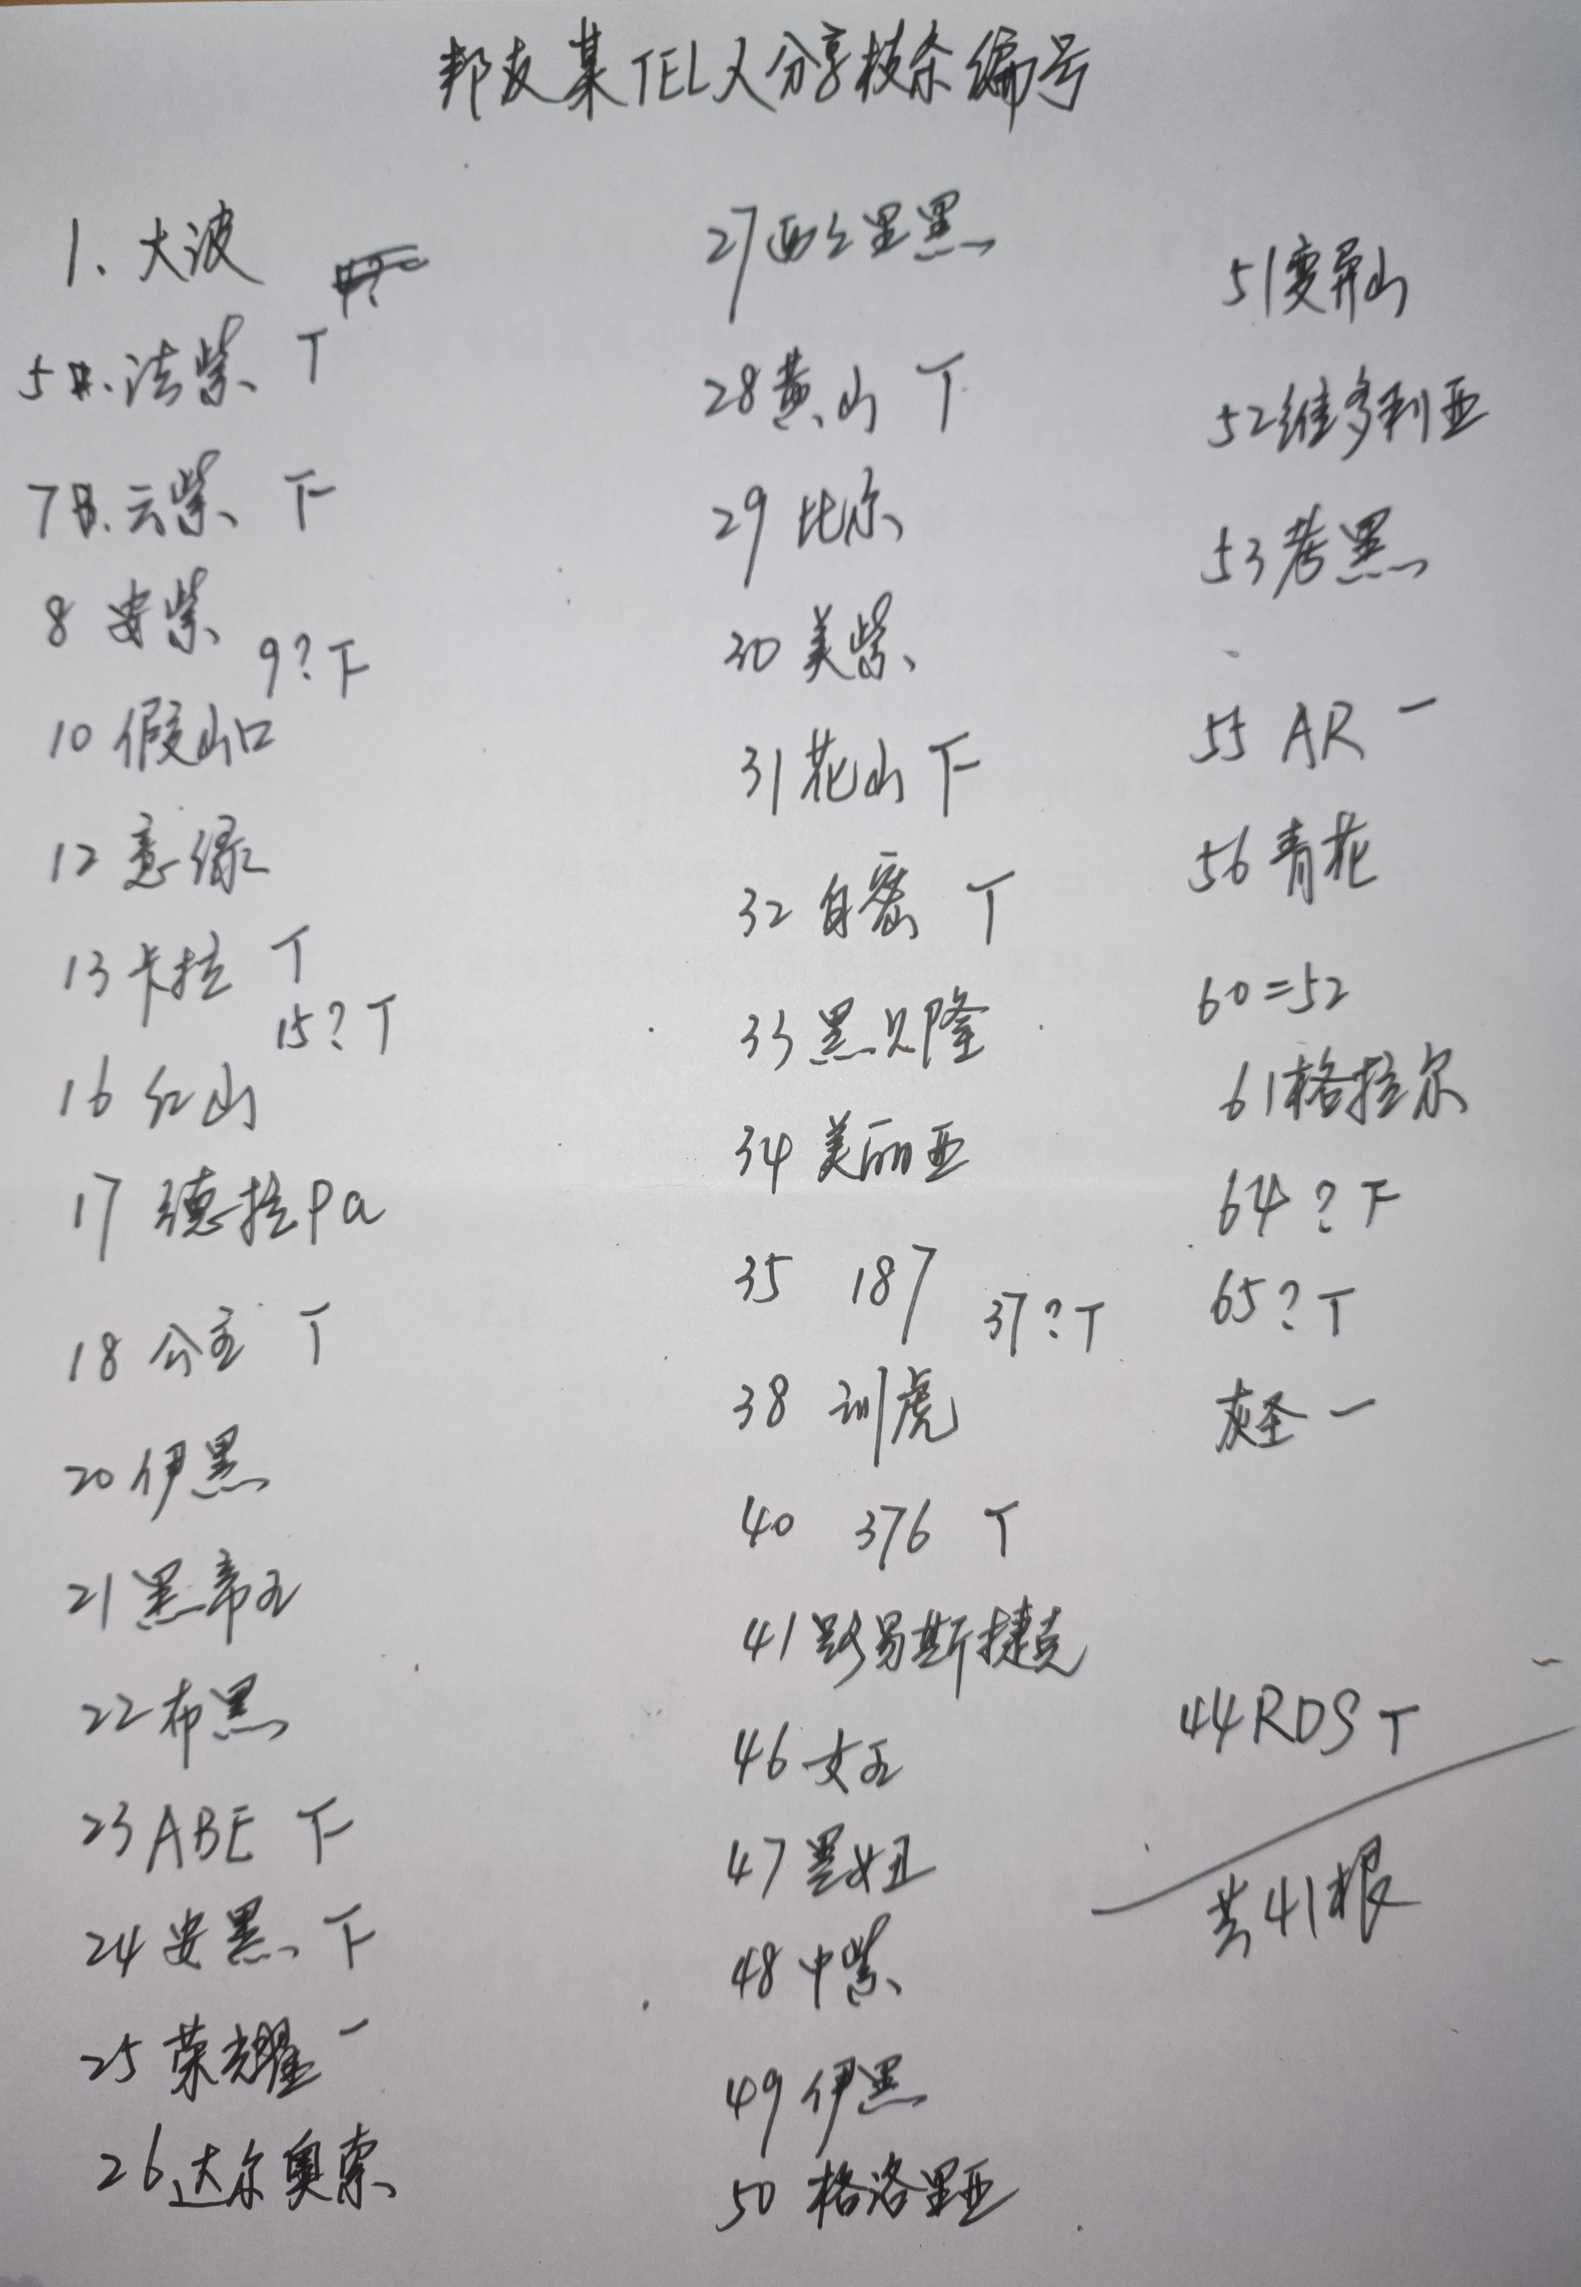 邦友某TEL又分享枝条编号
1、大波
5、法紫 T
7、云紫 下
8 安紫
9?下
10 假山口
12 意绿
13 卡拉 T
15?T
16 红山
17 德拉Pa
18 公主 T
20 伊黑
21 黑帝王
22 布黑
23 ABE 下
24 安黑 下
25 荣耀 一
26 达尔奥索
27 西西里黑
28 黄山 T
29 比尔
30 美紫
31 花山 下
32 自密 T
33 黑贝隆
34 美丽亚
35 187
37?T
38 训虎
40 376 T
41 路易斯捷克
46 女王
47 黑妞
48 中紫
49 伊黑
50 格洛里亚
51 变异山
52 维多利亚
53 考黑
55 AR 一
56 青花
60=52
61 格拉尔
64?下
65?T
灰圣 一
44 RDS T
共41根